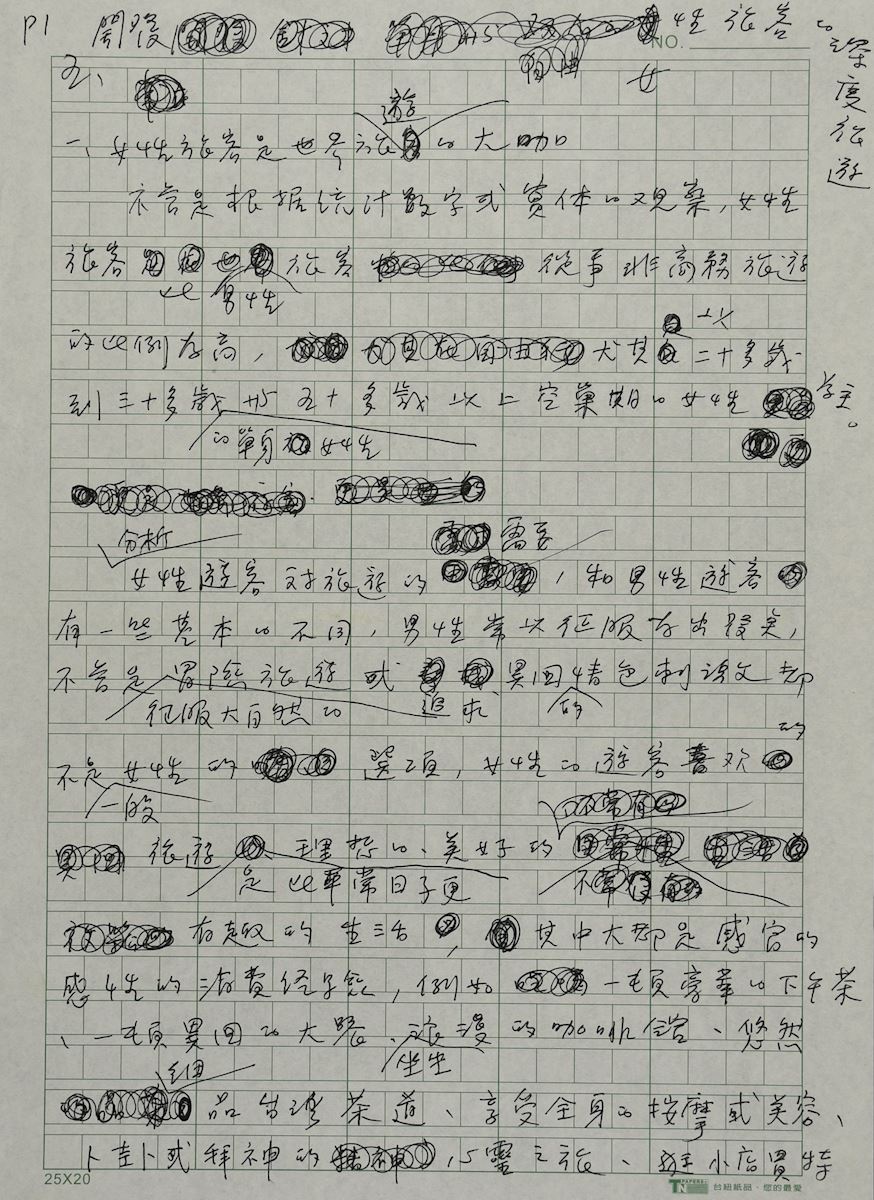 P1 女性旅客的深度旅遊
NO.
五、
一、女性旅客是世界旅遊的大咖
不管是根据统计数字或實体的观察,女性
旅客比男性旅客從事非商務旅遊
的比例为高,尤其以二十多歲
到三十多歲的單身女性和五十多歲以上空巢期的女性為主。
分析女性遊客对旅遊的需要,和男性遊客
有一些基本的不同,男性常以征服为出發點,
不管是征服大自然的冒險旅遊或追求異国情色的刺激
不是一般女性的選項,女性的遊客喜欢的
旅遊是比平常日子更理想的、美好的
有趣的生活,其中大都是感官的
感性的消費经驗,例如一頓豪華的下午茶
、一頓異国的大餐、坐坐浪漫的咖啡舘、悠然
細品台灣茶道、享受全身的按摩或美容、
卜卦或拜神的心靈之旅、逛小店買特
25X20
台紐紙品·您的最愛